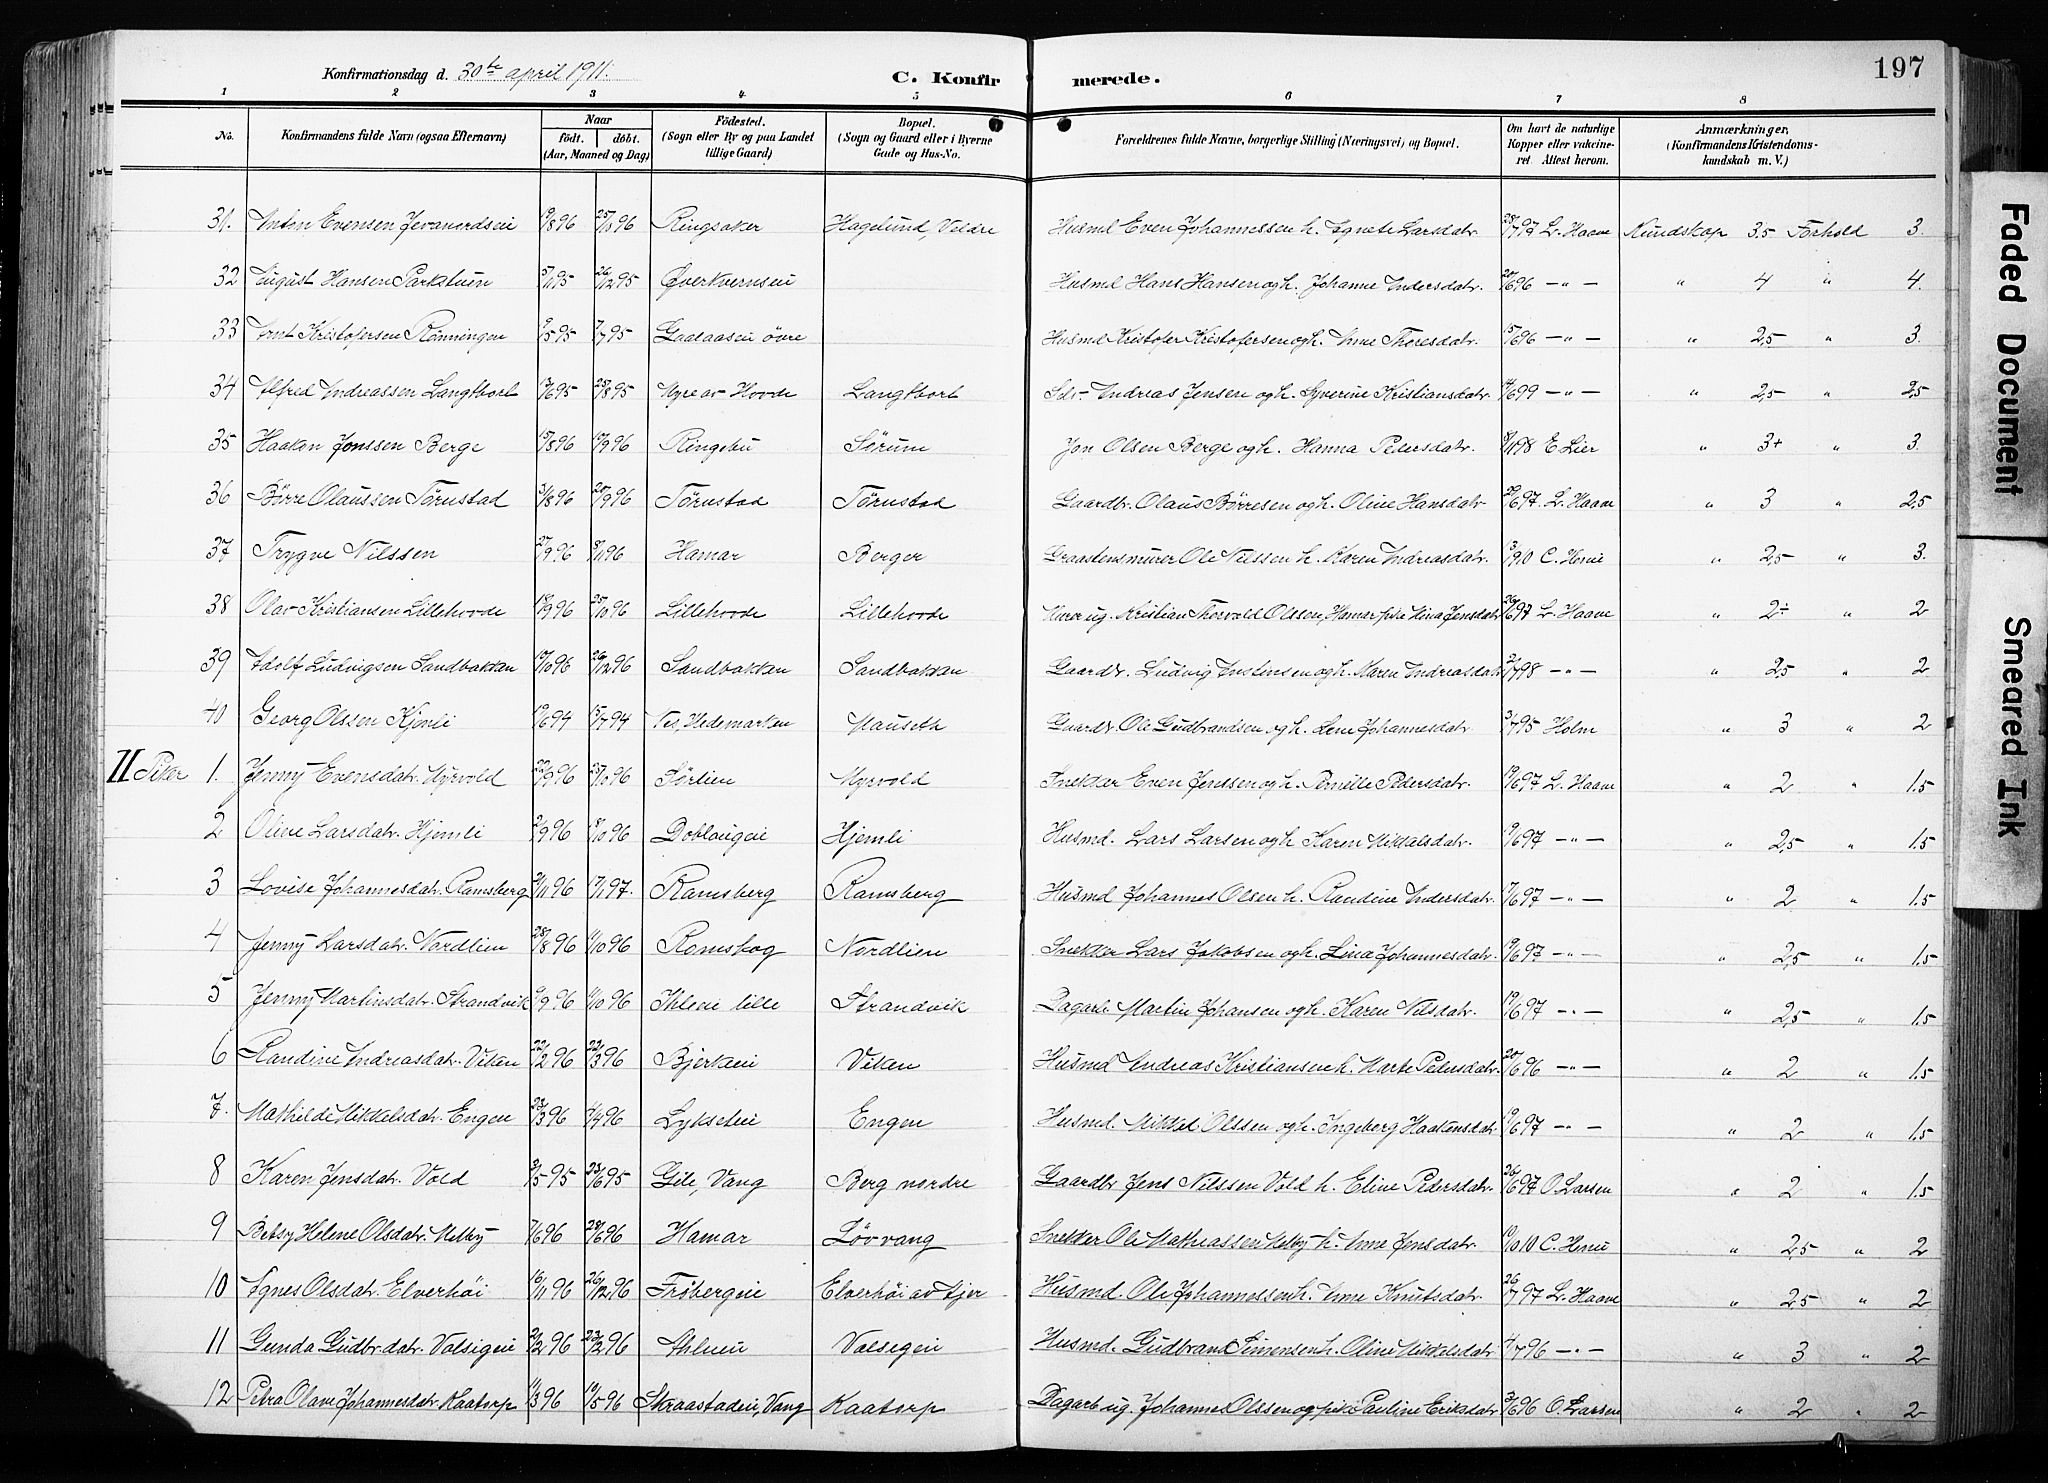 Konfirmationsdag d. 30te april 1911.
C. Konfirmerede.
197
1 2 3 4 5 6 7 8
No. Konfirmandens fulde Navn (ogsaa Efternavn) Naar født. døbt. (Aar, Maaned og Dag) Fødested. (Sogn eller By og paa Landet tillige Gaard) Bopæl. (Sogn og Gaard eller i Byerne Gade og Hus-No. Forældrenes fulde Navne, borgerlige Stilling (Næringsvei) og Bopæl. Om havt de naturlige Kopper eller vakcineret Attest herom. Anmærkninger, (Konfirmandens Kristendomskundskab m. V.)
31. Anton Evensen Jevanordseie 19/8 96 25/10 96 Ringsaker Hagelund, Veldre Husmd Even Johannessen h. Agnete Larsdatr. 28/7 97 L. Haave Kundskap 3.5 Forhold 3.
32 August Hansen Parkstuen 5/11 95 26/12 95 Øverkvernseie Husmd Hans Hansen og h. Johanne Andersdatr. 20/6 96 —"— " 4 " 4.
33 Arnt Kristofersen Rønningen 9/5 95 7/7 95 Gaalaaseie øvre Husmd Kristofer Kristofersen og h. Anne Thoresdatr. 15/6 96 —"— " 2,5 " 3.
34 Alfred Andreassen Langtbort 13/6 95 25/8 95 Myre av Hovde Langtbort Andreas Jensen og h. Syverine Kristiansdatr. 14/6 99 —"— " 2,5 " 2,5
35 Haakon Jonssen Berge 15/8 96 19/9 96 Ringebu Sørum Jon Olsen Berge og h. Hanna Pedersdatr. 8/11 98 E. Lier " 3+ " 3.
36 Børre Olaussen Tørnstad 31/8 96 20/9 96 Tørnstad Tørnstad Gaardbr. Olaus Børresen og h. Oline Hansdatr 29/6 97. L. Haave " 3 " 2,5
37 Trygve Nilssen 27/9 96 8/11 96 Hamar Berger Graastensmurer Ole Nilssen h. Karen Andreasdatr. 13/9 10 C. Henie " 2,5 " 3.
38 Olav Kristiansen Lillehovde 18/9 96 25/10 96 Lillehovde Lillehovde Murer ug. Kristian Thorvald Olssen, Hamar pike Mina Jensdatr 26/6 97 L. Haave " 2÷ " 2
39 Adolf Ludvigsen Sandbakken 10/10 96 26/12 96 Sandbakken Sandbakken Gaardbr. Ludvig Austinsen og h. Karen Andreasdatr 2/7 98 —"— " 2,5 " 2
40 Georg Olssen Kjemli 19/6 94 15/7 94 Nes, Hedemarken Mauseth Gaardbr. Ole Gudbrandsen og h. Lene Johannesdatr. 3/7 95 Holm " 3 " 2
II Piker 1. Jenny Evensdatr. Myrvold 22/9 96 25/10 96 Sørlien Myrvold Snekker Even Jenssen og h. Pernille Pedersdatr. 19/6 97 L. Haave " 2 " 1.5
2 Oline Larsdatr. Hjemli 2/9 96 18/10 96 Hjemli Husmd. Lars Larsen og h Karen Mikkelsdatr. 19/6 97 —"— " 2,5 " 1.5
3 Lovise Johannesdatr. Ramsberg 21/11 96 17/1 97. Ramsberg Ramsberg Husmd Johannes Olsen h. Randine Andersdatr. 17/6 97 —"— " 2 " 1.5
4 Jenny Larsdatr. Nordlien 28/8 96 11/10 96 Romskog Nordlien Snekker Lars Jakobsen og h. Lina Johannesdatr. 19/6 97 —"— " 2,5 " 1.5
5 Jenny Martinsdatr. Strandvik 9/9 96 11/10 96 Ihleeie lille Strandvik Dagarb. Martin Johansen og h. Karen Nilsdatr. 19/6 97 —"— " 2,5 " 1.5
6 Randine Andreasdatr. Viken 22/2 96 22/3 96 Bjerkeeie Viken Husmd Andreas Kristiansen h. Marte Pedersdatr. 20/6 96 —"— " 2 " 1.5
7. Mathilde Mikkelsdatr. Engen 23/3 96 4/4 96 Lykseteie Engen Husmd. Mikkel Olssen og h. Ingeborg Haakensdatr 19/6 97 —"— " 2 " 1.5
8 Karen Jensdatr. Vold 3/5 95 23/6 95 Gile, Vang Berg nordre Gaardbr Jens Nilssen Vold h. Eline Pedersdatr. 26/6 97 O. Larsen " 2 " 1.5
9 Betsy Helene Olsdatr. Melby 7/6 96 28/6 96 Hamar Løvvang Snekker Ole Mathiassen Melby h. Anne Jensdatr. 19/10 10 C. Henie " 2,5 " 2
10 Agnes Olsdatr. Elverhøi 16/11 96 26/12 96 Frøbergeie Elverhøi av Kjer Husmd. Ole Johannessen h. Anne Knutsdatr. 26/7 97 L. Haave " 2,5 " 2
11 Gunda Gudbr.datr. Valsigeie 2/2 96 23/2 96 Ihleeie Valsigeie Husmd. Gudbrand Simensen h. Oline Mikkelsdatr 4/7 96 —"— " 3 " 2
12 Petra Olave Johannesdatr. Kaatorp 11/3 96 10/5 96 Skraastadeie, Vang Kaatorp Dagarb ug. Johannes Olssen og pike Pauline Eriksdatr 3/6 96 O. Larsen " 2 " 2
Faded Document
Smeared Ink